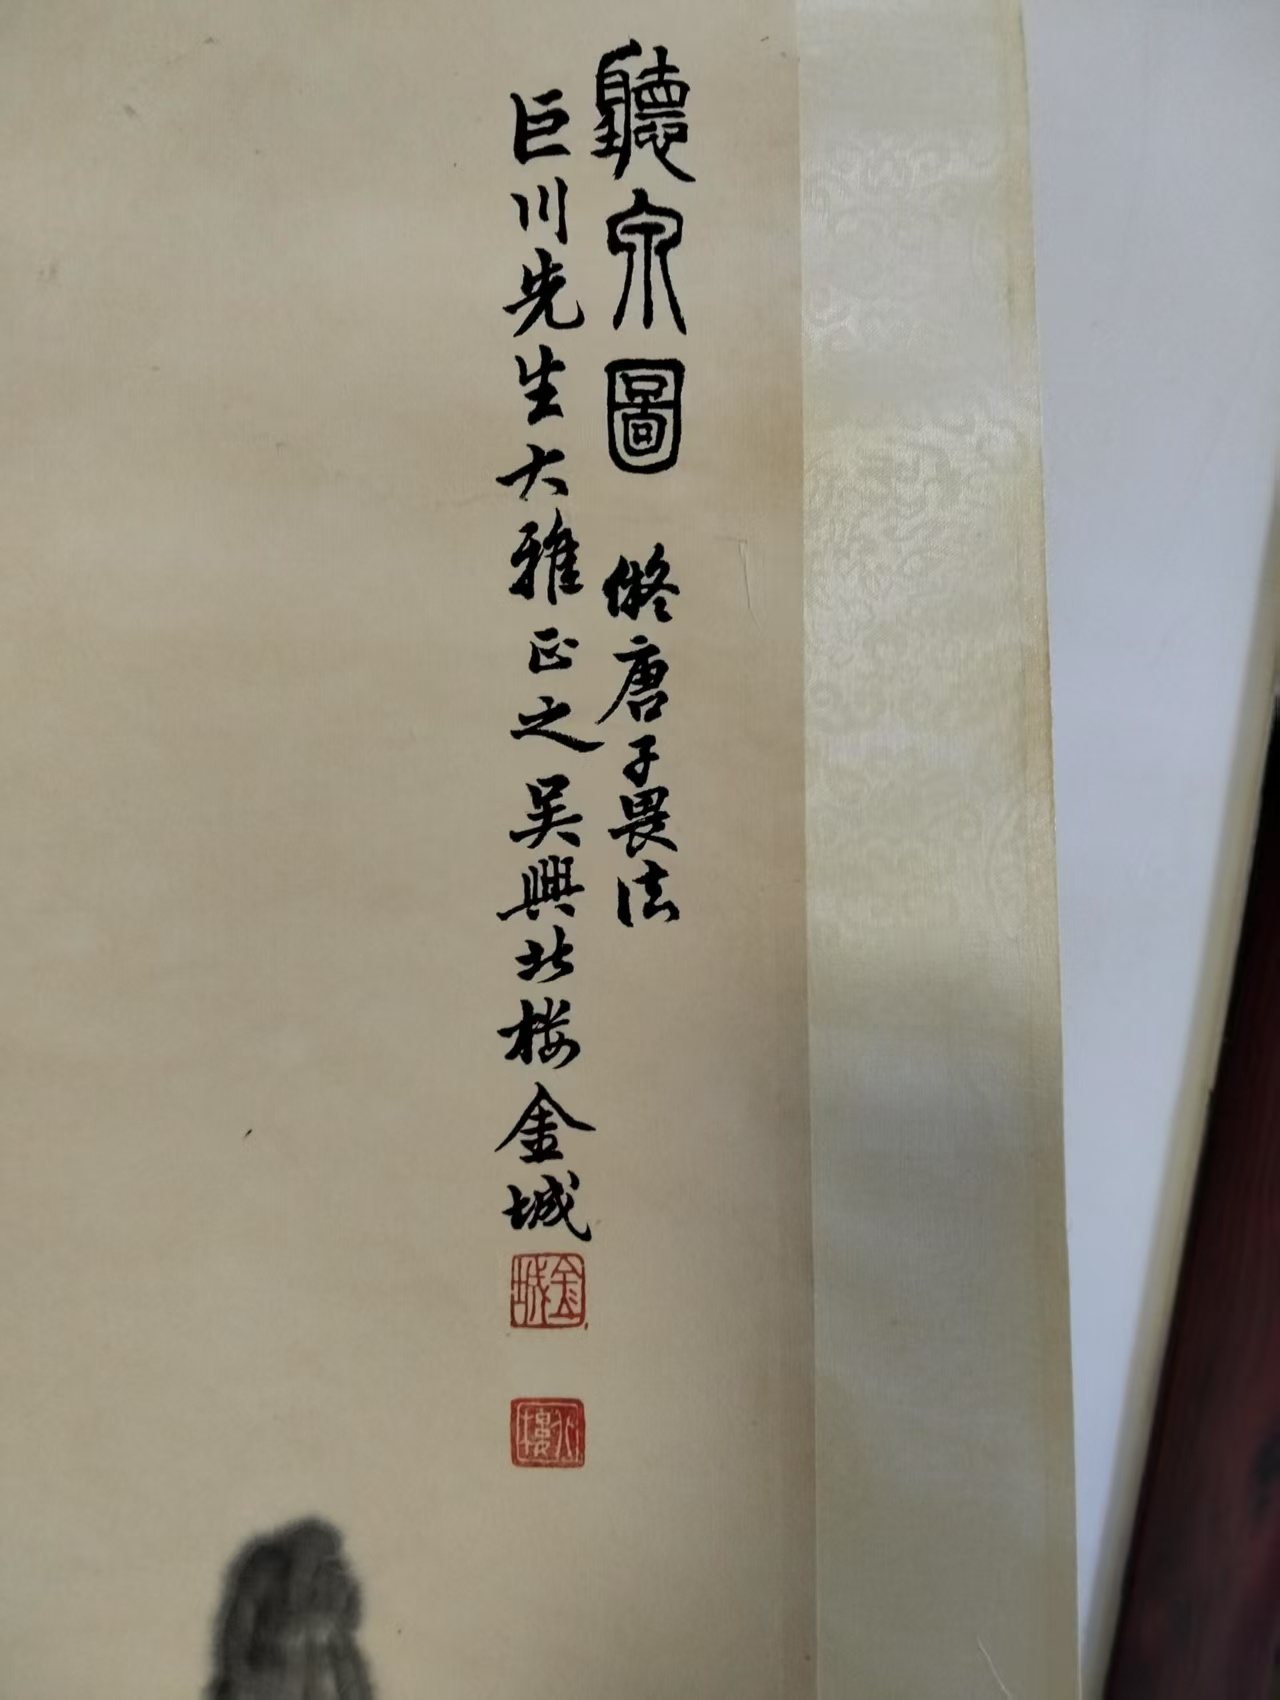 聽泉圖 儗唐子畏法
巨川先生大雅正之 吴興北楼金城
金城
北樓